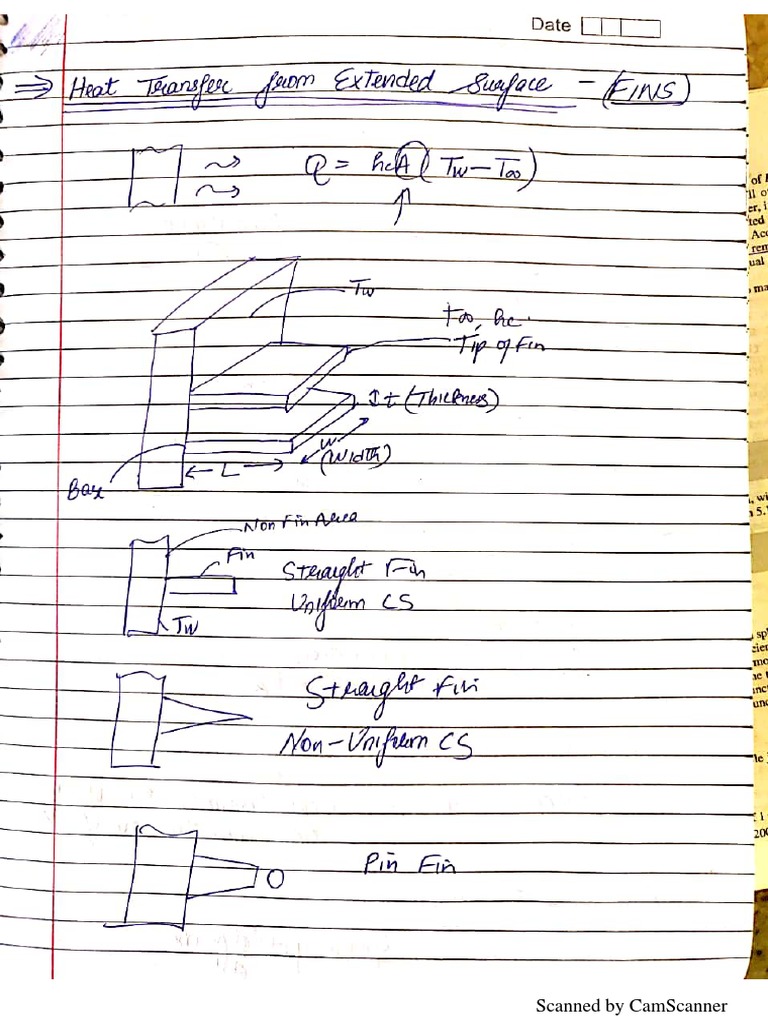 Date
⇒ Heat Transfer from Extended Surface - (FINS)
Q = hcA (Tw - T∞)
↑
Tw
T∞, hc
Tip of Fin
t (Thickness)
w
(Width)
L
Base
Non Fin Area
Fin
Straight Fin
Uniform CS
Tw
Straight Fin
Non-Uniform CS
Pin Fin
Scanned by CamScanner